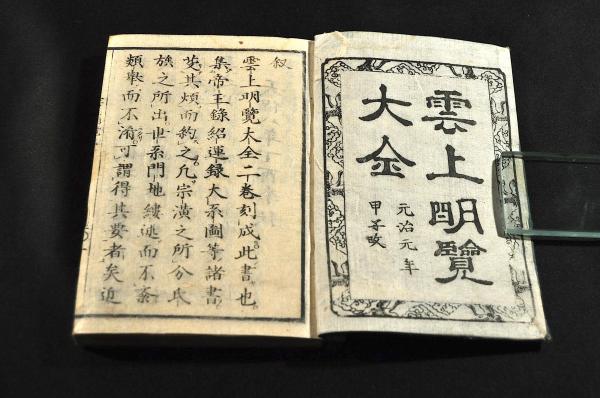 雲上明覽
大全
元治元年
甲子改
叙
雲上明覽大全二卷刻成此書也
集帝王錄紹運錄大系圖等諸書
芟其煩而約之凡宗潢之所分氏
族之所出世系門地縷述而不紊
類擧而不淆可謂得其要者矣近